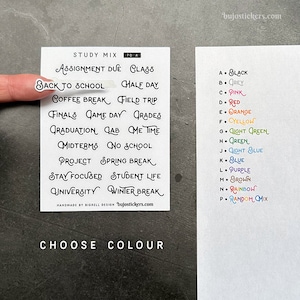 bujostickers.com
STUDY MIX 70-A
Assignment due Class
Back to school Half day
Coffee break Field trip
Finals Game day Grades
Graduation Lab Me time
Midterms No school
Project Spring break
Stay focused Student life
University Winter break
HANDMADE BY BIGHELL DESIGN bujostickers.com
CHOOSE COLOUR
A • Black
B • Grey
C • Pink
D • Red
E • Orange
F • Yellow
G • Light Green
H • Green
J • Light Blue
K • Blue
L • Purple
M • Brown
N • Rainbow
P • Random Mix